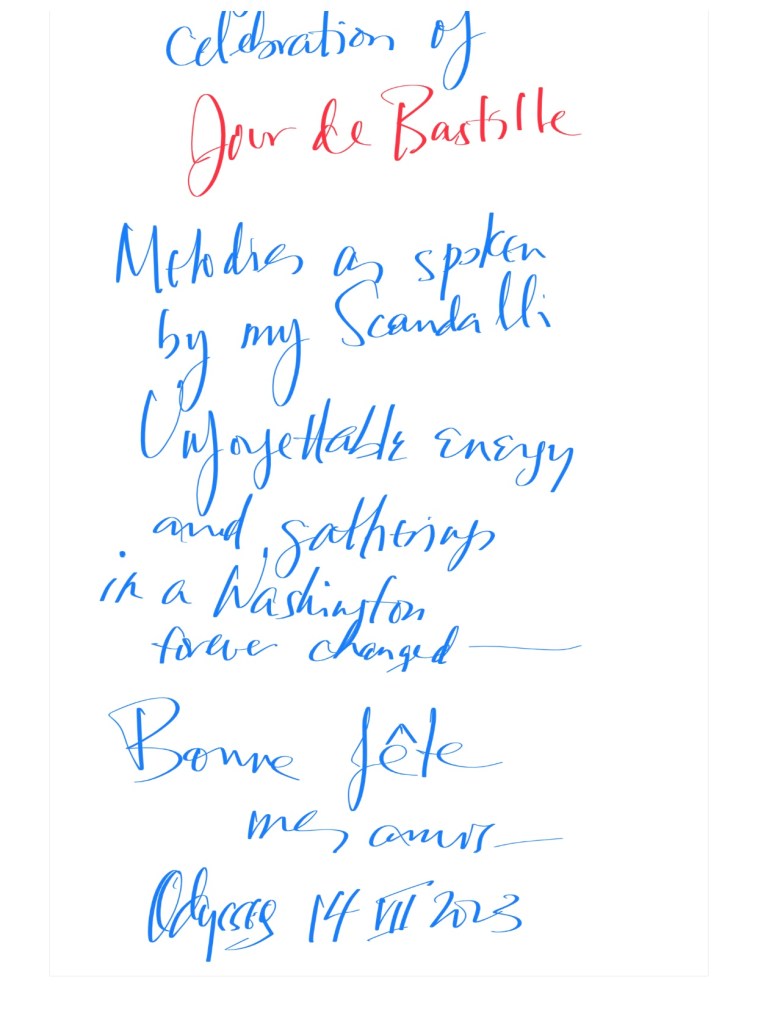 Celebration of
Jour de Bastille
Melodies as spoken
by my Scandalli
Unforgettable energy
and gatherings
in a Washington
forever changed —
Bonne fête
mes amis —
Odysseg 14 VII 2023